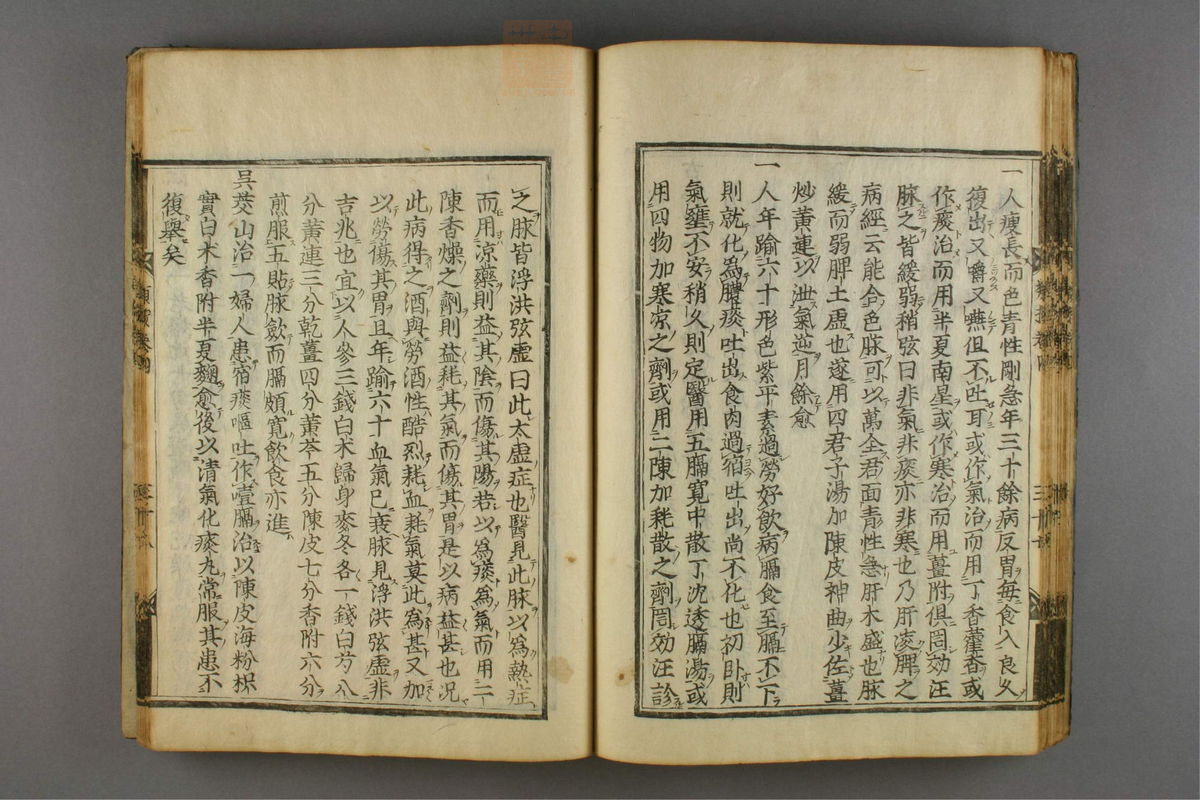 一人痩長而色青性剛急年三十餘病反胃每食入良久
復出又嚼又嚥但不吐耳或作氣治而用丁香藿香或
作痰治而用半夏南星或作寒治而用薑附俱罔効汪
脉之皆緩弱稍弦曰非氣非痰亦非寒也乃肝凌脾之
病經云能合色脉可以萬全君面青性急肝木盛也脉
緩而弱脾土虛也遂用四君子湯加陳皮神曲少佐薑
炒黄連以泄氣逆月餘愈
一人年踰六十形色紫平素過勞好飲病膈食至膈不下
則就化爲膿痰吐出食肉過宿吐出尚不化也初卧則
氣壅不安稍久則定醫用五膈寬中散丁沈透膈湯或
用四物加寒凉之劑或用二陳加耗散之劑罔効汪診
之脉皆浮洪弦虛曰此太虛症也醫見此脉以爲熱症
而用凉藥則益其陰而傷其陽若以爲痰爲氣而用二
陳香燥之劑則益耗其氣而傷其胃是以病益甚也况
此病得之酒與勞酒性酷烈耗血耗氣莫此爲甚又加
以勞傷其胃且年踰六十血氣已衰脉見浮洪弦虛非
吉兆也宜以人參三錢白术歸身麥冬各一錢白芍八
分黄連三分乾薑四分黄芩五分陳皮七分香附六分
煎服五貼脉斂而膈頗寬飲食亦進
吳茭山治一婦人患宿痰嘔吐作噎膈治以陳皮海粉枳
實白术香附半夏麯愈後以清氣化痰丸常服其患不
復舉矣